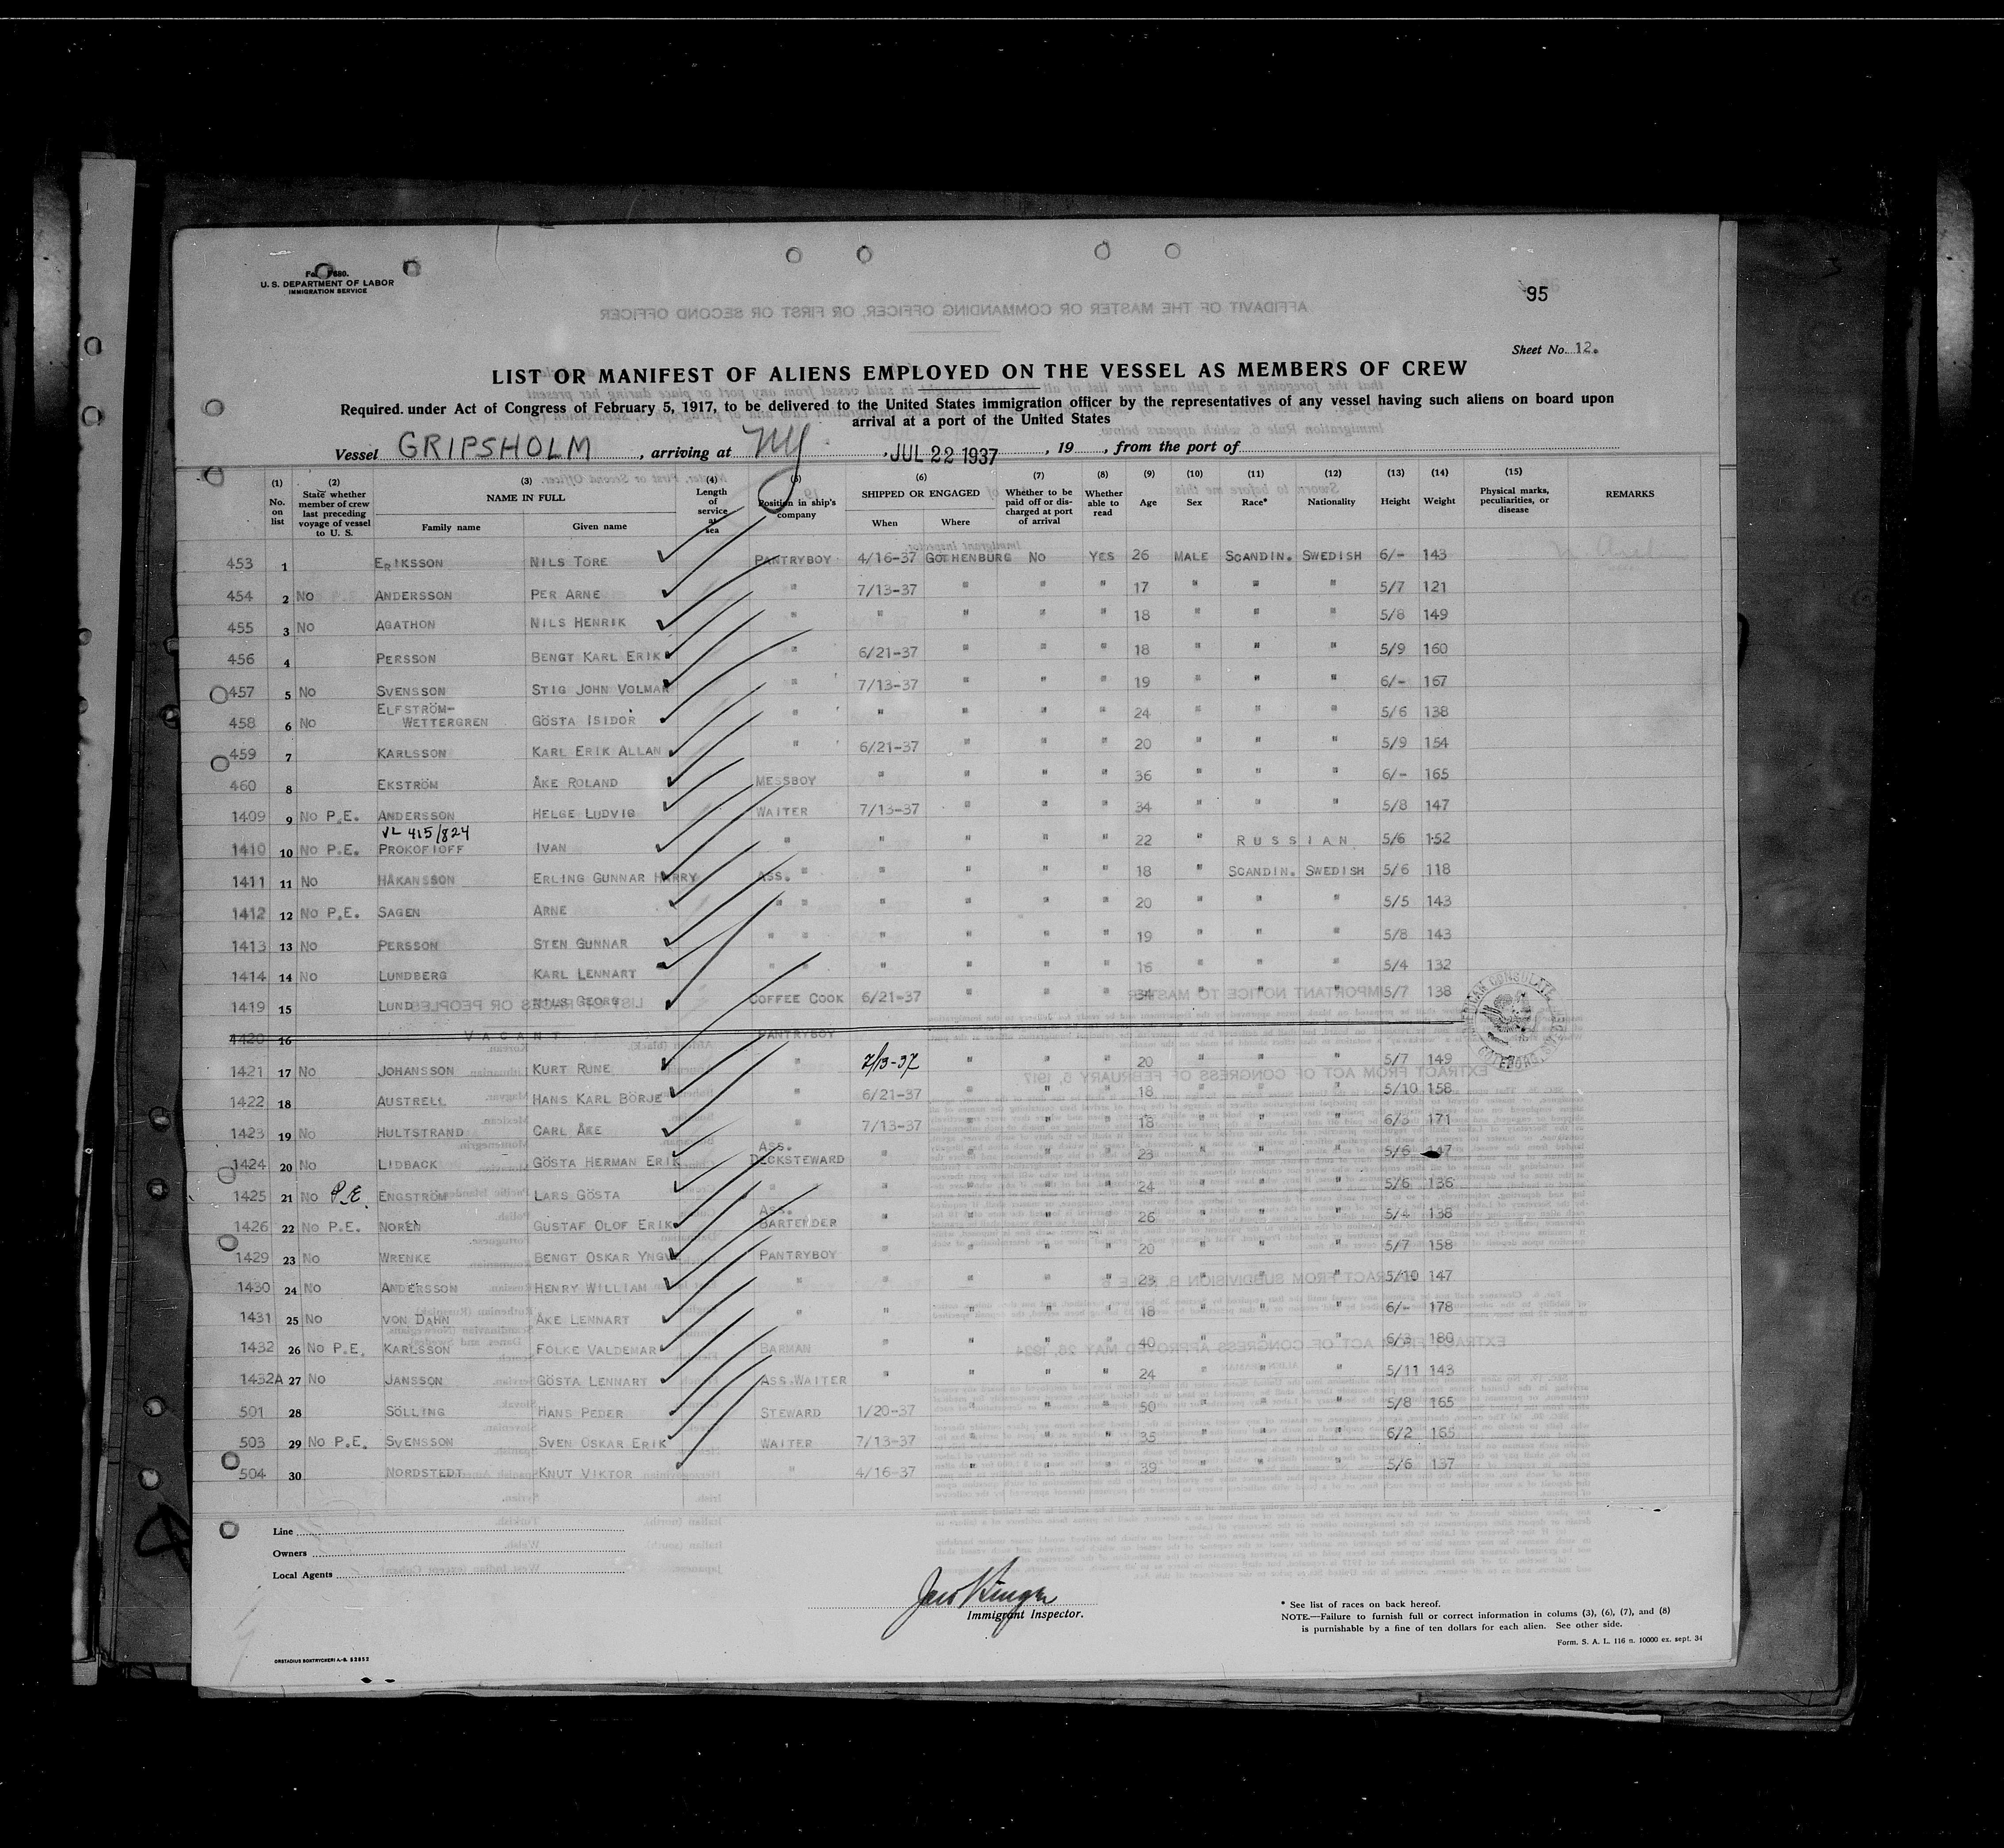 Fo 680.
U. S. DEPARTMENT OF LABOR
IMMIGRATION SERVICE
95
Sheet No. 12.
LIST OR MANIFEST OF ALIENS EMPLOYED ON THE VESSEL AS MEMBERS OF CREW
Required. under Act of Congress of February 5, 1917, to be delivered to the United States immigration officer by the representatives of any vessel having such aliens on board upon
arrival at a port of the United States
Vessel GRIPSHOLM , arriving at NY , JUL 22 1937 , 19 , from the port of
(1) No. on list (2) State whether member of crew last preceding voyage of vessel to U. S. (3) NAME IN FULL Family name Given name (4) Length of service at sea (5) Position in ship's company (6) SHIPPED OR ENGAGED When Where (7) Whether to be paid off or discharged at port of arrival (8) Whether able to read (9) Age (10) Sex (11) Race* (12) Nationality (13) Height (14) Weight (15) Physical marks, peculiarities, or disease REMARKS
453 1 ERIKSSON NILS TORE PANTRYBOY 4/16-37 GOTHENBURG NO YES 26 MALE SCANDIN. SWEDISH 6/- 143
454 2 NO ANDERSSON PER ARNE " 7/13-37 " " " 17 " " " 5/7 121
455 3 NO AGATHON NILS HENRIK " " " " " 18 " " " 5/8 149
456 4 PERSSON BENGT KARL ERIK " 6/21-37 " " " 18 " " " 5/9 160
457 5 NO SVENSSON STIG JOHN VOLMAR " 7/13-37 " " " 19 " " " 6/- 167
458 6 NO ELFSTRÖM-WETTERGREN GÖSTA ISIDOR " " " " " 24 " " " 5/6 138
459 7 KARLSSON KARL ERIK ALLAN " 6/21-37 " " " 20 " " " 5/9 154
460 8 EKSTRÖM ÅKE ROLAND MESSBOY " " " " 36 " " " 6/- 165
1409 9 NO P.E. ANDERSSON HELGE LUDVIG WAITER 7/13-37 " " " 34 " " " 5/8 147
VL 415/824
1410 10 NO P.E. PROKOFIOFF IVAN " " " " " 22 " RUSSIAN 5/6 152
1411 11 NO HÅKANSSON ERLING GUNNAR HARRY ASS. " " " " " 18 " SCANDIN. SWEDISH 5/6 118
1412 12 NO P.E. SAGEN ARNE " " " " " " 20 " " " 5/5 143
1413 13 NO PERSSON STEN GUNNAR " " " " " " 19 " " " 5/8 143
1414 14 NO LUNDBERG KARL LENNART " " " " " " 16 " " " 5/4 132
1419 15 LUND NILS GEORG COFFEE COOK 6/21-37 " " " 34 " " " 5/7 138
1420 16 VACANT PANTRYBOY
1421 17 NO JOHANSSON KURT RUNE " 7/13-37 " " " 20 " " " 5/7 149
1422 18 AUSTRELL HANS KARL BÖRJE " 6/21-37 " " " 18 " " " 5/10 158
1423 19 NO HULTSTRAND CARL ÅKE " 7/13-37 " " " 18 " " " 6/3 171
1424 20 NO LIDBACK GÖSTA HERMAN ERIK ASS. DECKSTEWARD " " " " 23 " " " 5/6 147
1425 21 NO P.E. ENGSTRÖM LARS GÖSTA " " " " " 24 " " " 5/6 136
1426 22 NO P.E. NORÉN GUSTAF OLOF ERIK ASS. BARTENDER " " " " 26 " " " 5/4 138
1429 23 NO WRENKE BENGT OSKAR YNGVE PANTRYBOY " " " " 20 " " " 5/7 158
1430 24 NO ANDERSSON HENRY WILLIAM " " " " " 23 " " " 5/10 147
1431 25 NO VON DAHN ÅKE LENNART " " " " " 18 " " " 6/- 178
1432 26 NO P.E. KARLSSON FOLKE VALDEMAR BARMAN " " " " 40 " " " 6/3 180
1432A 27 NO JANSSON GÖSTA LENNART ASS.WAITER " " " " 24 " " " 5/11 143
501 28 SÖLLING HANS PEDER STEWARD 1/20-37 " " " 50 " " " 5/8 165
503 29 NO P.E. SVENSSON SVEN OSKAR ERIK WAITER 7/13-37 " " " 35 " " " 6/2 165
504 30 NORDSTEDT KNUT VIKTOR " 4/16-37 " " " 39 " " " 5/6 137
Line
Owners
Local Agents
Immigrant Inspector.
* See list of races on back hereof.
NOTE.—Failure to furnish full or correct information in colums (3), (6), (7), and (8)
is purnishable by a fine of ten dollars for each alien. See other side.
Form. S. A. L. 116 n. 10000 ex. sept. 34
ORSTADIUS BOKTRYCKERI A.-B. 52852